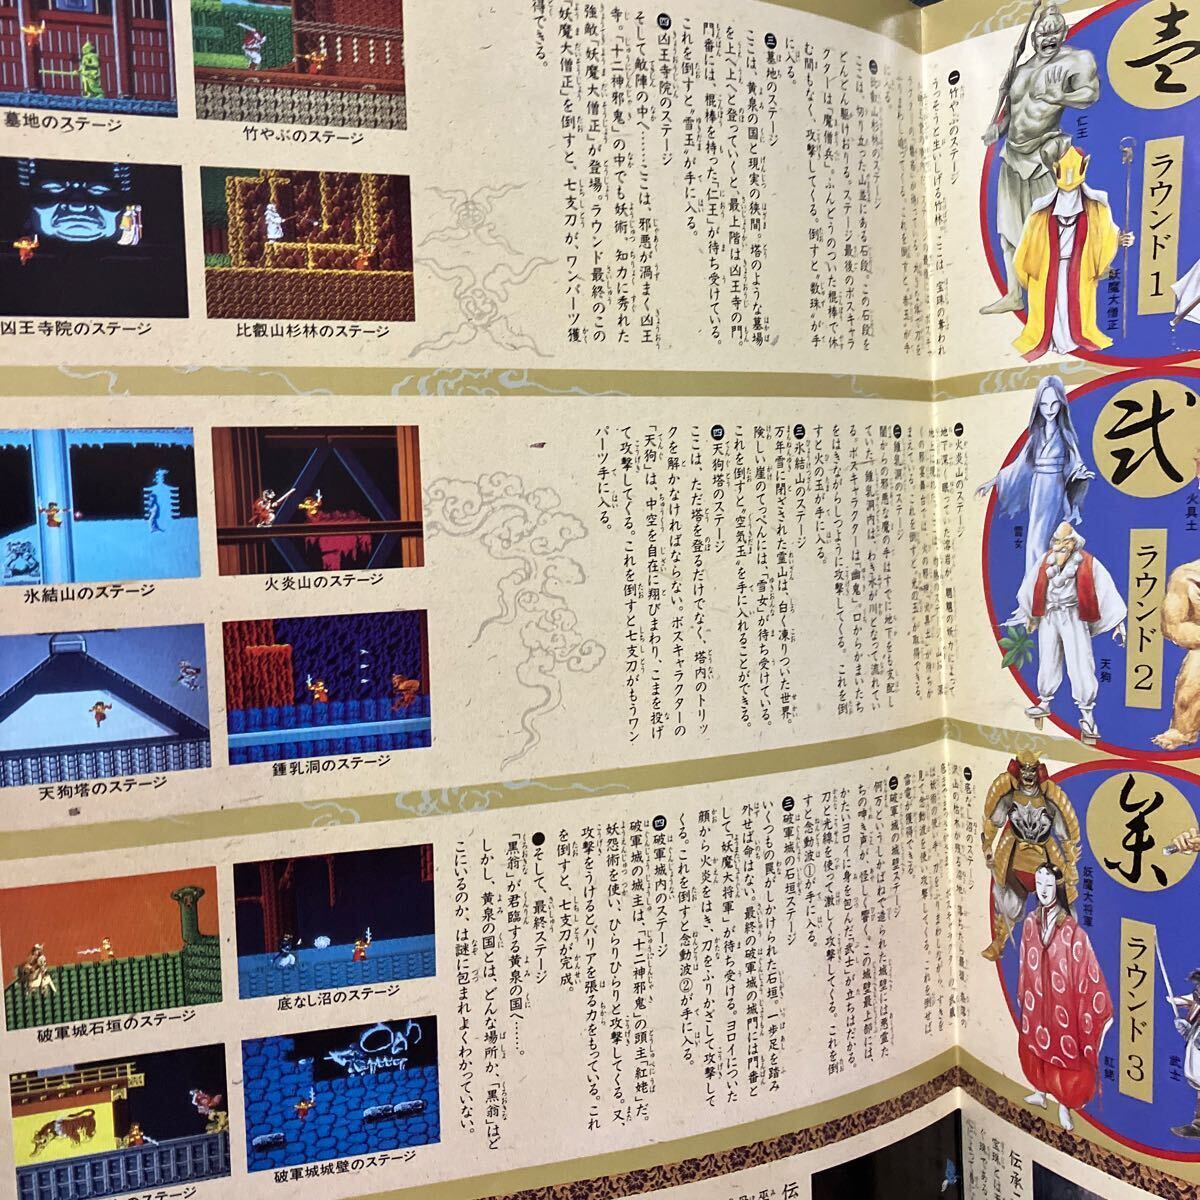 壱
ラウンド1
仁王
妖魔大僧正
㊀竹やぶのステージ
うっそうと生いしげる竹林。ここは、宝珠の奪われ
㊁比叡山杉林のステージ
ここは、切り立った山並にある石段。この石段を
どんどん駆けおりる。ステージ最後のボスキャラ
クターは「魔僧兵」。ふんどうのついた棍棒で休
む間もなく、攻撃してくる。倒すと"数珠"が手
に入る。
㊂墓地のステージ
ここは、黄泉の国と現実の狭間。塔のような墓場
を上へ上へと登っていくと、最上階は凶王寺の門。
門番には、棍棒を持った「仁王」が待ち受けている。
これを倒すと"雪玉"が手に入る。
㊃凶王寺院のステージ
そして敵陣の中へ……ここは、邪悪が渦まく凶王
寺。「十二神邪鬼」の中でも妖術、知力に秀れた
強敵「妖魔大僧正」が登場。ラウンド最終のこの
「妖魔大僧正」を倒すと、七支刀が、ワンパーツ獲
得できる。
墓地のステージ
竹やぶのステージ
凶王寺院のステージ
比叡山杉林のステージ
弐
ラウンド2
雪女
火具土
天狗
㊀火炎山のステージ
㊁鍾乳洞のステージ
闇からの邪悪な魔の手はすでに地下をも支配し
ていた。鍾乳洞内は、わき水が川となって流れてい
る。ボスキャラクターは「幽鬼」。口からかまいたち
をはきながらしつように攻撃してくる。これを倒
すと火の玉が手に入る。
㊂氷結山のステージ
万年雪に閉ざされた霊山は、白く凍りついた世界。
険しい崖のてっぺんには、「雪女」が待ち受けている。
これを倒すと"空気玉"を手に入れることができる。
㊃天狗塔のステージ
ここは、ただ塔を登るだけでなく、塔内のトリッ
クを解かなければならない。ボスキャラクターの
「天狗」は、中空を自在に翔びまわり、こまを投げ
て攻撃してくる。これを倒すと七支刀がもうワン
パーツ手に入る。
氷結山のステージ
火炎山のステージ
天狗塔のステージ
鍾乳洞のステージ
ラウンド3
妖魔大将軍
紅姥
武士
㊀底なし沼のステージ
㊁破軍城の城壁ステージ
何万というしかばねで造られた城壁には悪霊た
ちの呻き声が、怪しく響く。この城壁最上部には、
かたいヨロイに身を包んだ、「武士」が立ちはだかる。
刀と光線を使って激しく攻撃してくる。これを倒
すと念動波①が手に入る。
㊂破軍城の石垣ステージ
いくつもの罠がしかけられた石垣。一歩足を踏み
外せば命はない。最終の破軍城の城門には門番と
して「妖魔大将軍」が待ち受ける。ヨロイについた
顔から火炎をはき、刀をふりかざして攻撃して
くる。これを倒すと念動波②が手に入る。
㊃破軍城内のステージ
破軍城の城主は、「十二神邪鬼」の頭主「紅姥」だ。
妖怨術を使い、ひらりひらりと攻撃してくる。又、
攻撃をうけるとバリアを張る力をもっている。これ
を倒すと、七支刀が完成。
●そして、最終ステージ
「黒翁」が君臨する黄泉の国へ……。
しかし、黄泉の国とは、どんな場所か、「黒翁」はど
こにいるのか、は謎に包まれよくわかっていない。
破軍城石垣のステージ
底なし沼のステージ
破軍城城壁のステージ
のステージ
伝承
伝